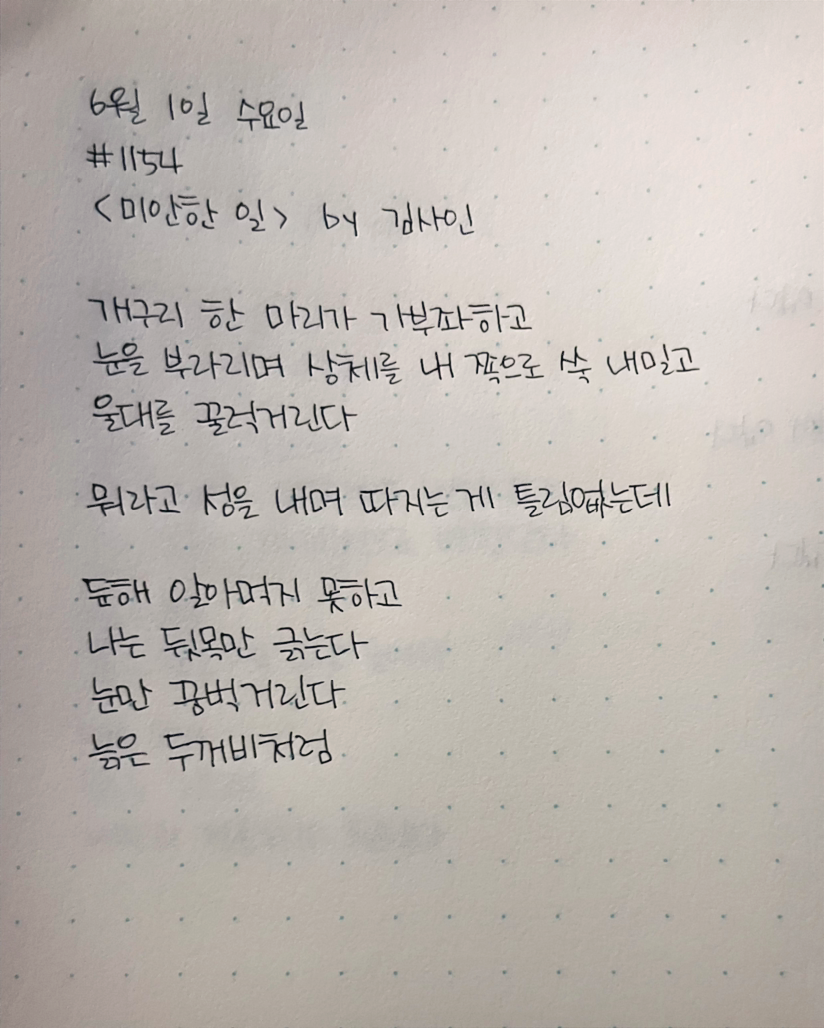 6월 1일 수요일
#1154
<미안한 일> by 김사인
개구리 한 마리가 가부좌하고
눈을 부라리며 상체를 내 쪽으로 쑥 내밀고
울대를 꿀럭거린다
뭐라고 성을 내며 따지는 게 틀림없는데
둔해 알아먹지 못하고
나는 뒷목만 긁는다
눈만 꿈벅거린다
늙은 두꺼비처럼